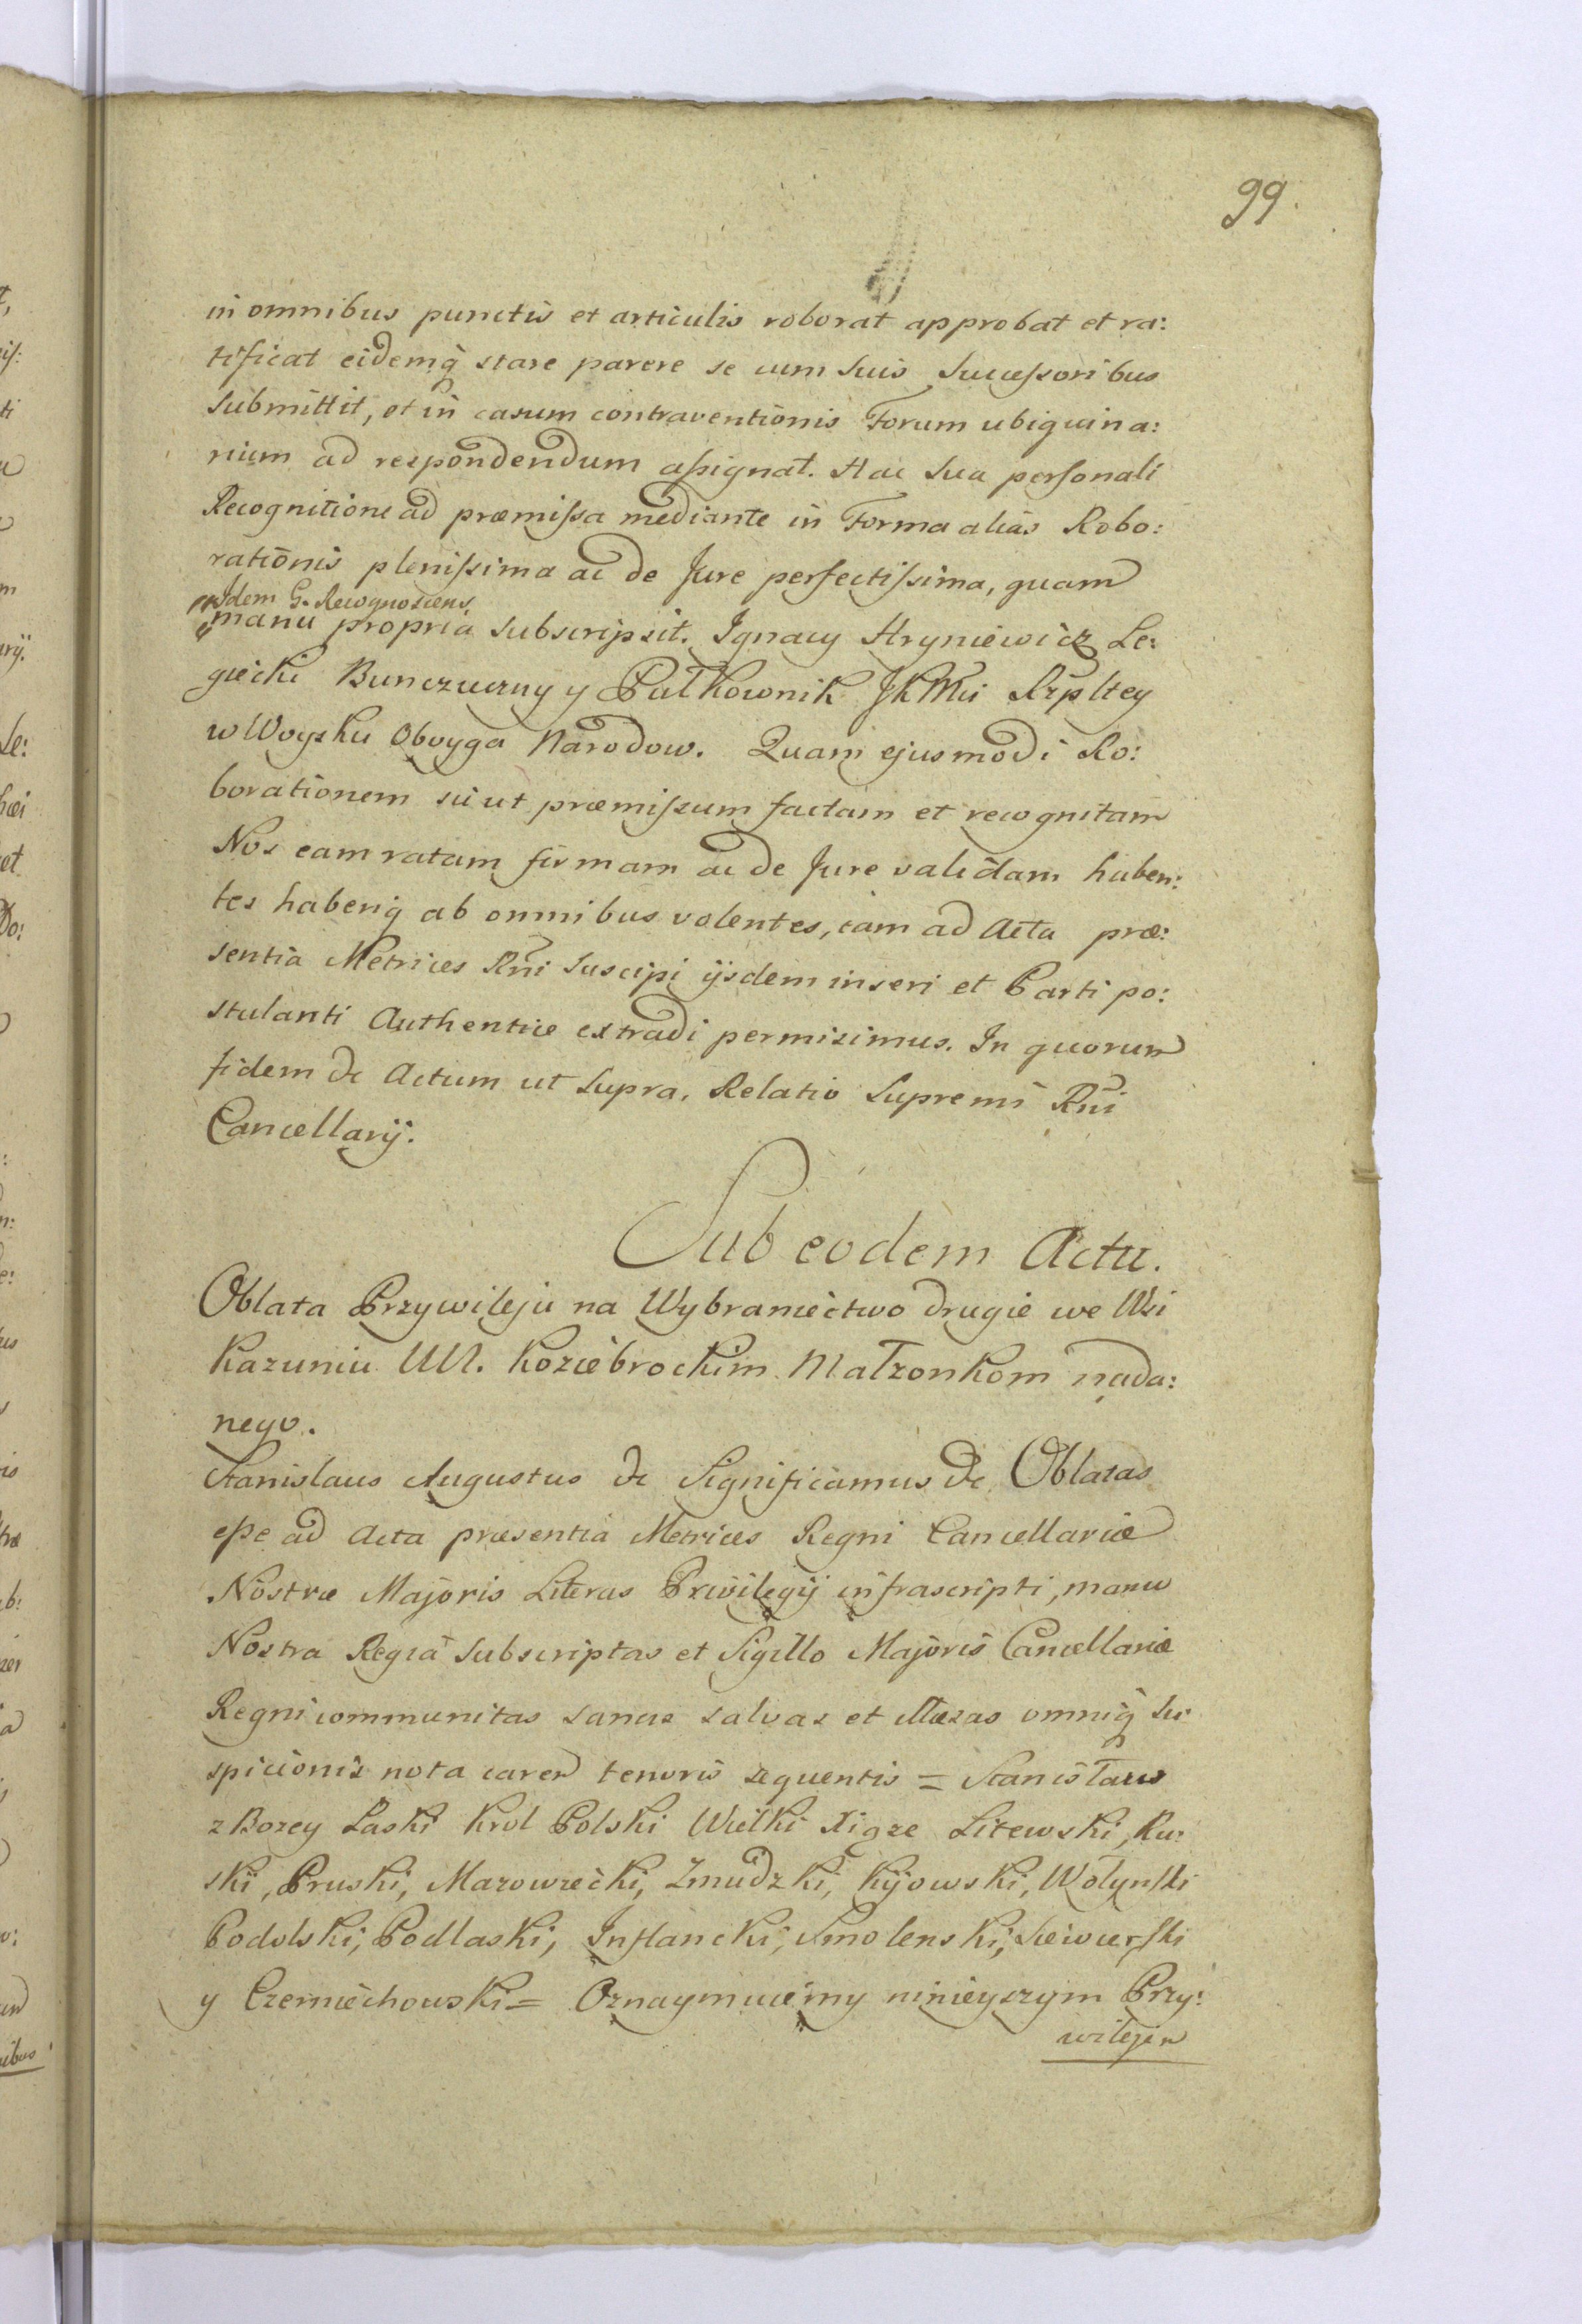 99.
in omnibus punctis et articulis roborat approbat et ra:
tificat eidemq̀ stare parere se cum suis Successoribus
submittit, et in casum contraventionis Forum ubiquina:
rium ad respondendum assignat. Hac Sua personali
Recognitione ad præmissa mediante in Forma alias Robo:
rationis plenissima ac de Jure perfectissima, quam
Idem G. Recognoscens
manu propria subscripsit. Ignacy Hryniewicz Le:
giecki Bunczuczny y Pułkownik JKMci Rzpltey
w Woysku Oboyga Narodow. Quam ejusmodi Ro:
borationem sicut præmissum factam et recognitam
Nos eam ratam firmam ac de Jure validam haben:
tes haberiq̀ ab omnibus volentes, eam ad Acta præ:
sentia Metrices Rñi suscipi ijsdem inseri et Parti po:
stulanti Authentice extradi permisimus. In quorum
fidem &c Actum ut Supra, Relatio Supremi Rñi
Cancellarij.
Sub eodem Actu.
Oblata Przywileju na Wybraniectwo drugie we Wsi
Kazuniu UUl. Koziebrockim Małzonkom nada:
nego.
Stanislaus Augustus &c Significamus &c Oblatas
esse ad Acta præsentia Metrices Regni Cancellariæ
Nostræ Majoris Literas Privilegij infrascripti, manu
Nostra Regia Subscriptas et Sigillo Majoris Cancellariæ
Regni communitas sanas salvas et illæsas omniq̀ Su:
spicionis nota caren tenoris sequentis = Stanisław
z Bozey Łaski Krol Polski Wielki Xiąze Litewski, Ru:
ski, Pruski, Mazowiecki, Zmudzki, Kijowski, Wołynski
Podolski, Podlaski, Inflancki, Smolenski, Siewierski
y Czerniechowski = Oznaymuiemy ninieyszym Przy:
wilejem